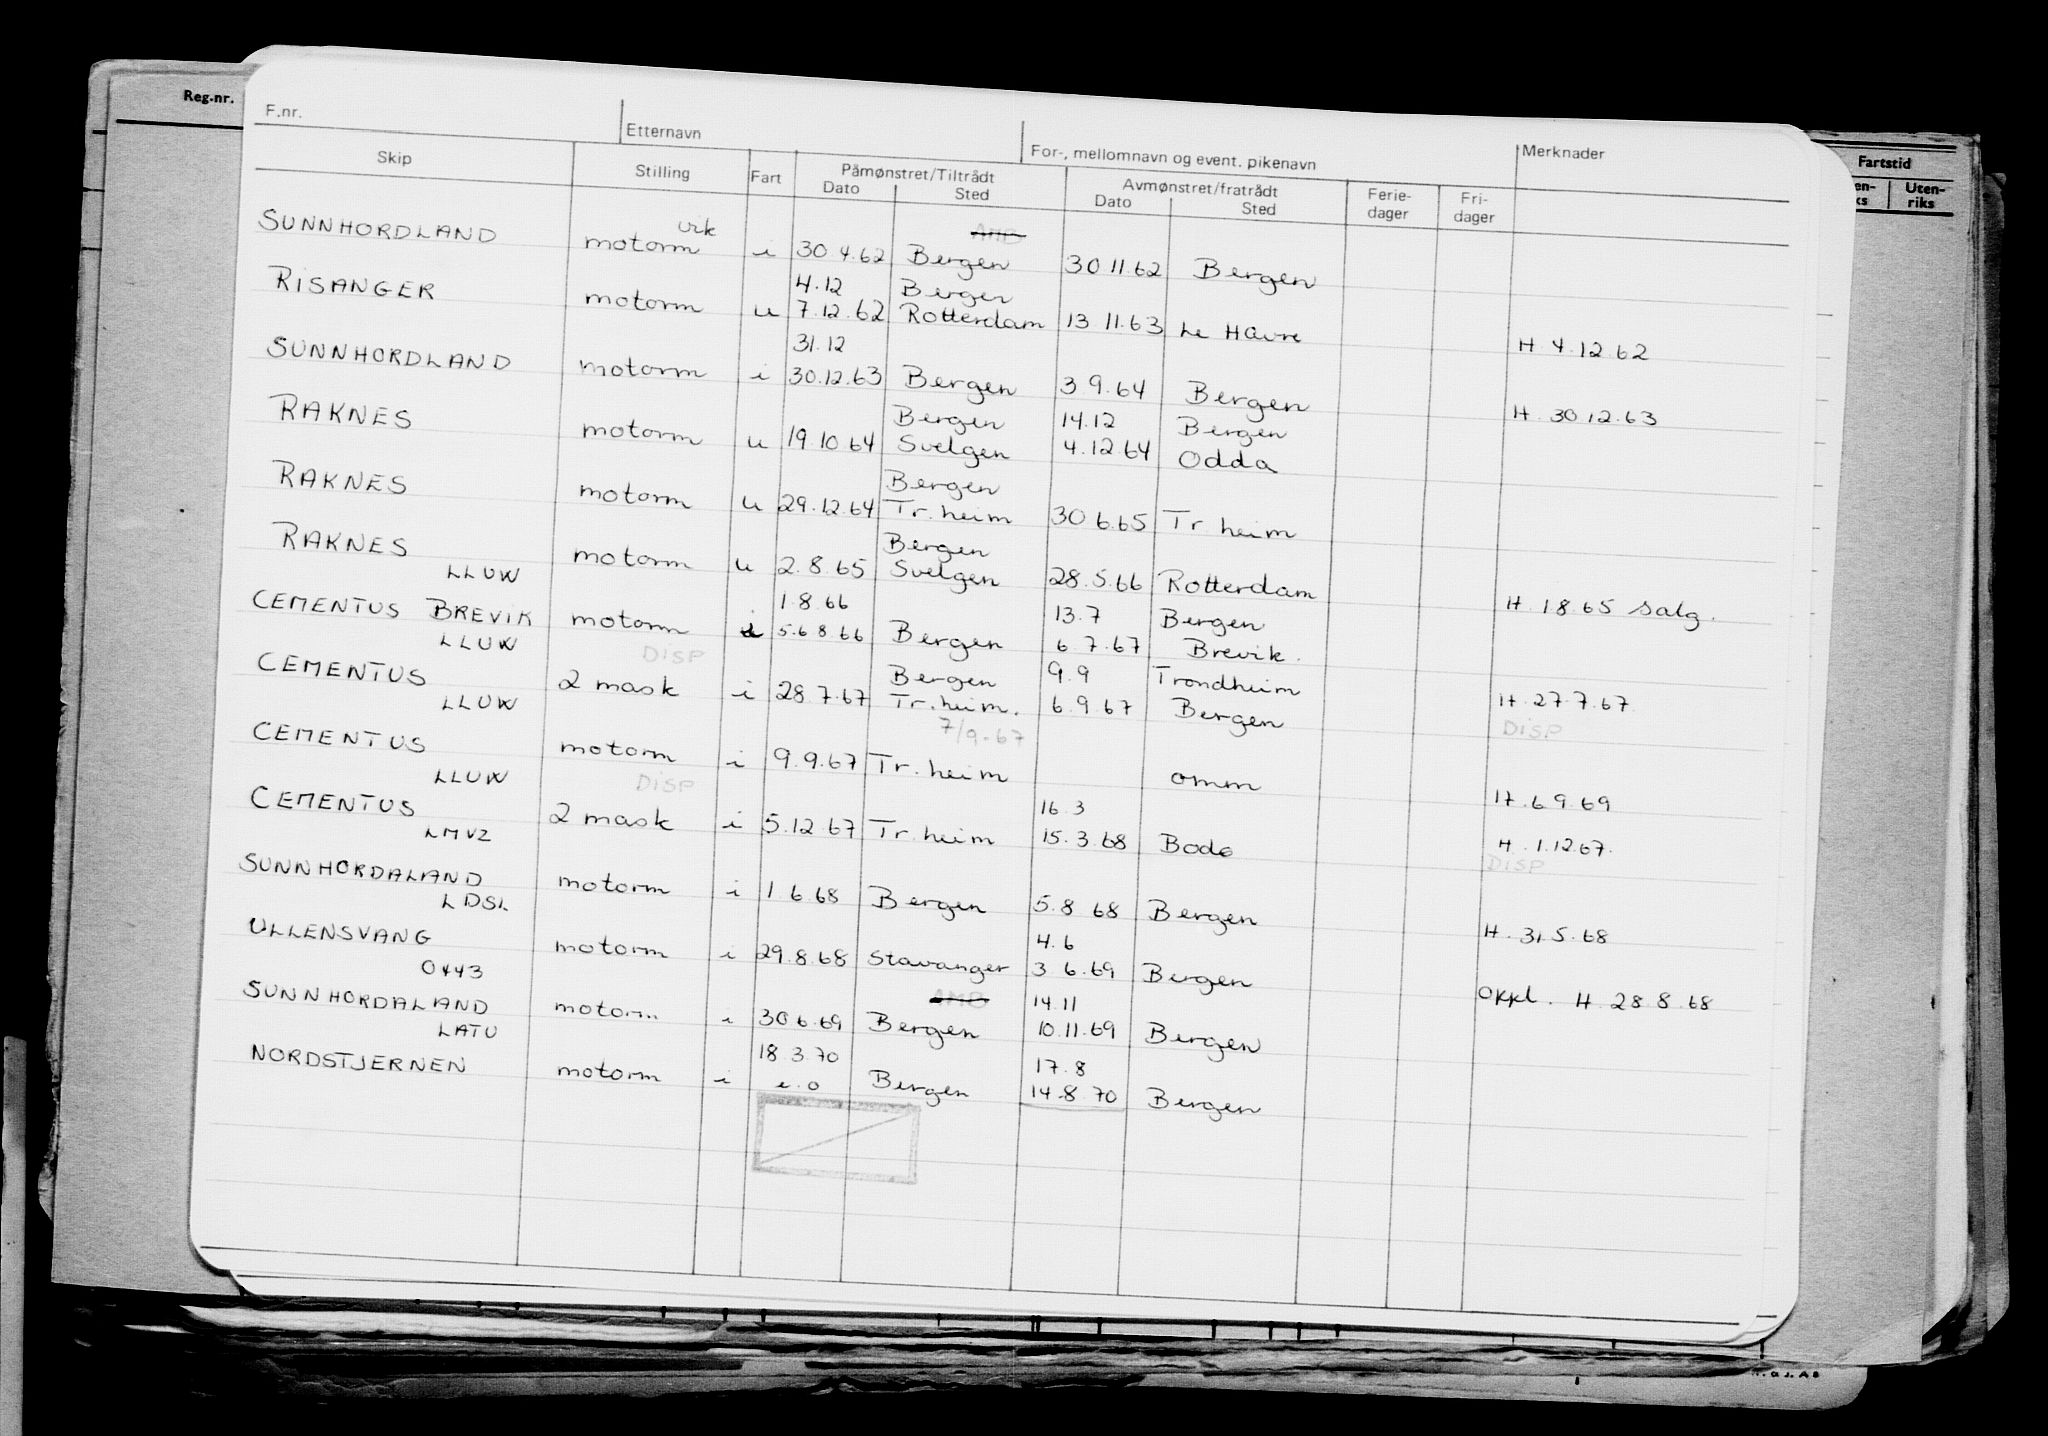 Reg.nr.
F.nr.
Etternavn
For-, mellomnavn og event. pikenavn
Merknader
Fartstid
Skip
Stilling
Fart
Påmønstret/Tiltrådt
Dato
Sted
Avmønstret/fratrådt
Dato
Sted
Ferie-
dager
Fri-
dager
en-
ks
Uten-
riks
vik
SUNNHORDLAND motorm i 30 4.62 Bergen 30 11.62 Bergen
4.12 Bergen
RISANGER motorm u 7.12.62 Rotterdam 13 11.63 Le Havre H. 4.12.62
31.12
SUNNHORDLAND motorm i 30.12.63 Bergen 3 9.64 Bergen H. 30 12.63
Bergen 14.12 Bergen
RAKNES motorm u 19.10 64 Svelgen 4.12.64 Odda
Bergen
RAKNES motorm u 29.12.64 Tr.heim 30 6.65 Tr heim
Bergen
RAKNES motorm u 2.8.65 Svelgen 28.5.66 Rotterdam H. 1 8 65 Salg.
LLUW 1.8.66 13.7 Bergen
CEMENTUS BREVIK motorm i 5.6 8 66 Bergen 6 7.67 Brevik.
LLUW DISP Bergen 9.9 Trondheim
CEMENTUS 2 mask i 28.7.67 Tr.heim. 6.9.67 Bergen H. 27.7.67
LLUW 7/9-67 DISP
CEMENTUS motorm i 9.9.67 Tr.heim omm H. 6 9.69
LLUW DISP 16.3
CEMENTUS 2 mask i 5.12 67 Tr.heim 15.3.68 Bodø H. 1.12.67.
LMVZ DISP
SUNNHORDALAND motorm i 1 6 68 Bergen 5.8 68 Bergen H. 31.5.68
LDSL 4.6
ULLENSVANG motorm i 29.8.68 Stavanger 3 6.69 Bergen Okkl. H 28 8.68
0443 14.11
SUNNHORDALAND motorm i 30 6.69 Bergen 10.11.69 Bergen
LATU 18.3.70 17.8
NORDSTJERNEN motorm i i.o Bergen 14.8.70 Bergen